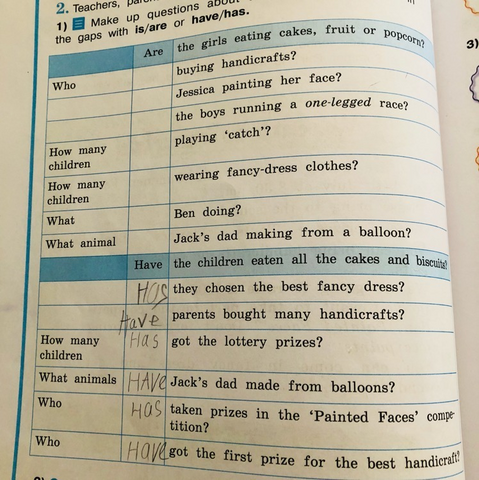 2. Teachers,
1) Make up questions about
the gaps with is/are or have/has.
Are the girls eating cakes, fruit or popcorn?
Who buying handicrafts?
Jessica painting her face?
the boys running a one-legged race?
How many children playing ‘catch’?
How many children wearing fancy-dress clothes?
What Ben doing?
What animal Jack's dad making from a balloon?
Have the children eaten all the cakes and biscuits?
Has they chosen the best fancy dress?
Have parents bought many handicrafts?
How many children Has got the lottery prizes?
What animals HAVe Jack's dad made from balloons?
Who HAS taken prizes in the ‘Painted Faces’ compe-
tition?
Who HAVe got the first prize for the best handicraft?
3)